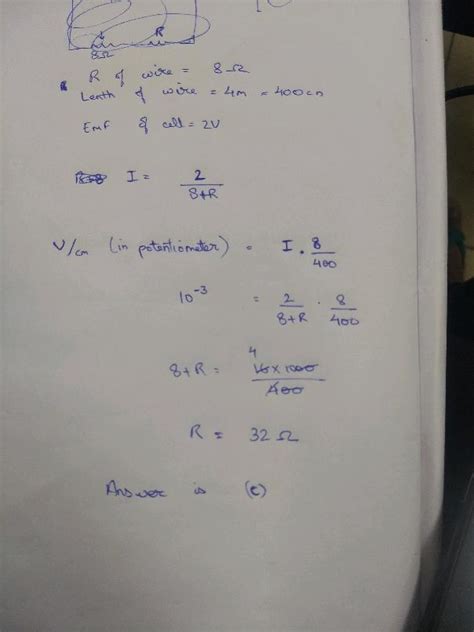 R
8Ω
R of wire = 8Ω
Lenth of wire = 4m = 400cm
Emf of cell = 2V
I = 2/8+R
V/cm (in potentiometer) = I . 8/400
10⁻³ = 2/8+R . 8/400
8+R = 4 16×1000/400
R = 32Ω
Answer is (c)